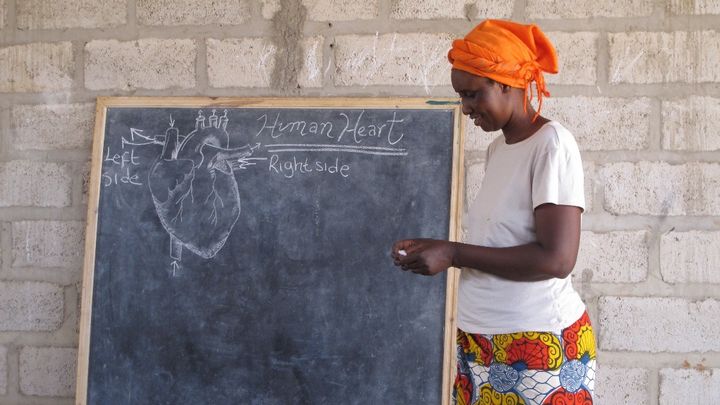 Human Heart
Left
side
Right side